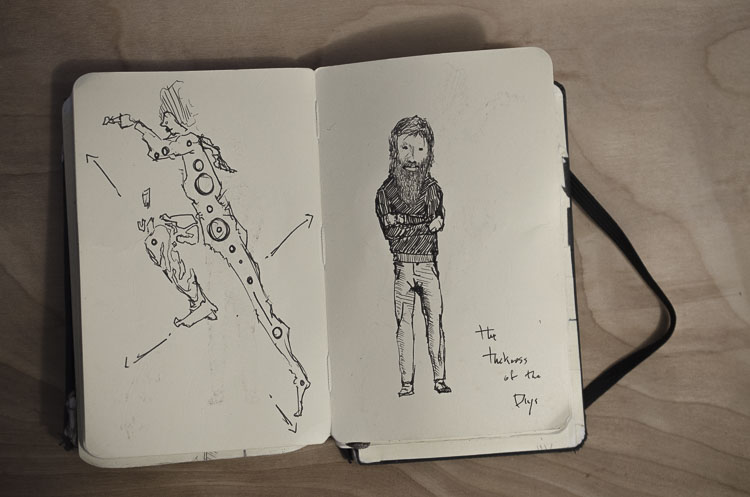 the
thickness
of the
Days